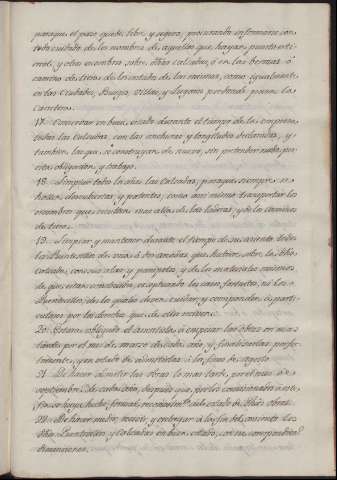 paraque el paso quede libre y seguro, procurando informarse con
todo cuidado de los nombres de aquellos que hayan puesto estier-
col, y otros escombros sobre dhas calzadas, ò en las bermas ò
camino de tierra de los costados de las mismas, como igualmente
en las Ciudades, Burgos, Villas, y Lugares por donde pasare la
carretera.
17. Conservar en buen estado durante el tiempo de la empresa
todas las Calzadas, con las anchuras y longitudes declaradas, y
tambien las que se construyan de nuevo, sin pretender nada por
esta obligacion y trabajo.
18. Limpiar todos los años las Calzadas, para que siempre se
hallen descubiertas, y patentes; como asi mismo transportar los
escombros que resultan mas allá de los linderos, y de los caminos
de tierra.
19. Limpiar y mantener durante el tiempo de su asiento todos
los Puentecillos de una ò dos arcadas que hubiere sobre las dhas
Calzadas, con sus alas y parapetos, y de los materiales mismos
de que estan construidos, exceptuando los
Puentecillos, de los quales deven cuidar y componer los parti-
culares por los derechos que de ellos
20. Estará obligado el asentista à empezar las obras
por el mes de marzo de cada año, y finalizarlas perfec-
tamente, y en estado de admitirlas à los fines de agosto.
21. De hacer admitir las obras lo mas tarde, por el mes de
septiembre de cada año, despues que por los comisionados à este
fin se haya hecho formal reconocimto del estado de dhas obras.
22. De hacer medir, recivir y entregar à los fin del asiento los
dhos Puentecillos y Calzadas en buen estado, con sus correspondtes
dimensiones.